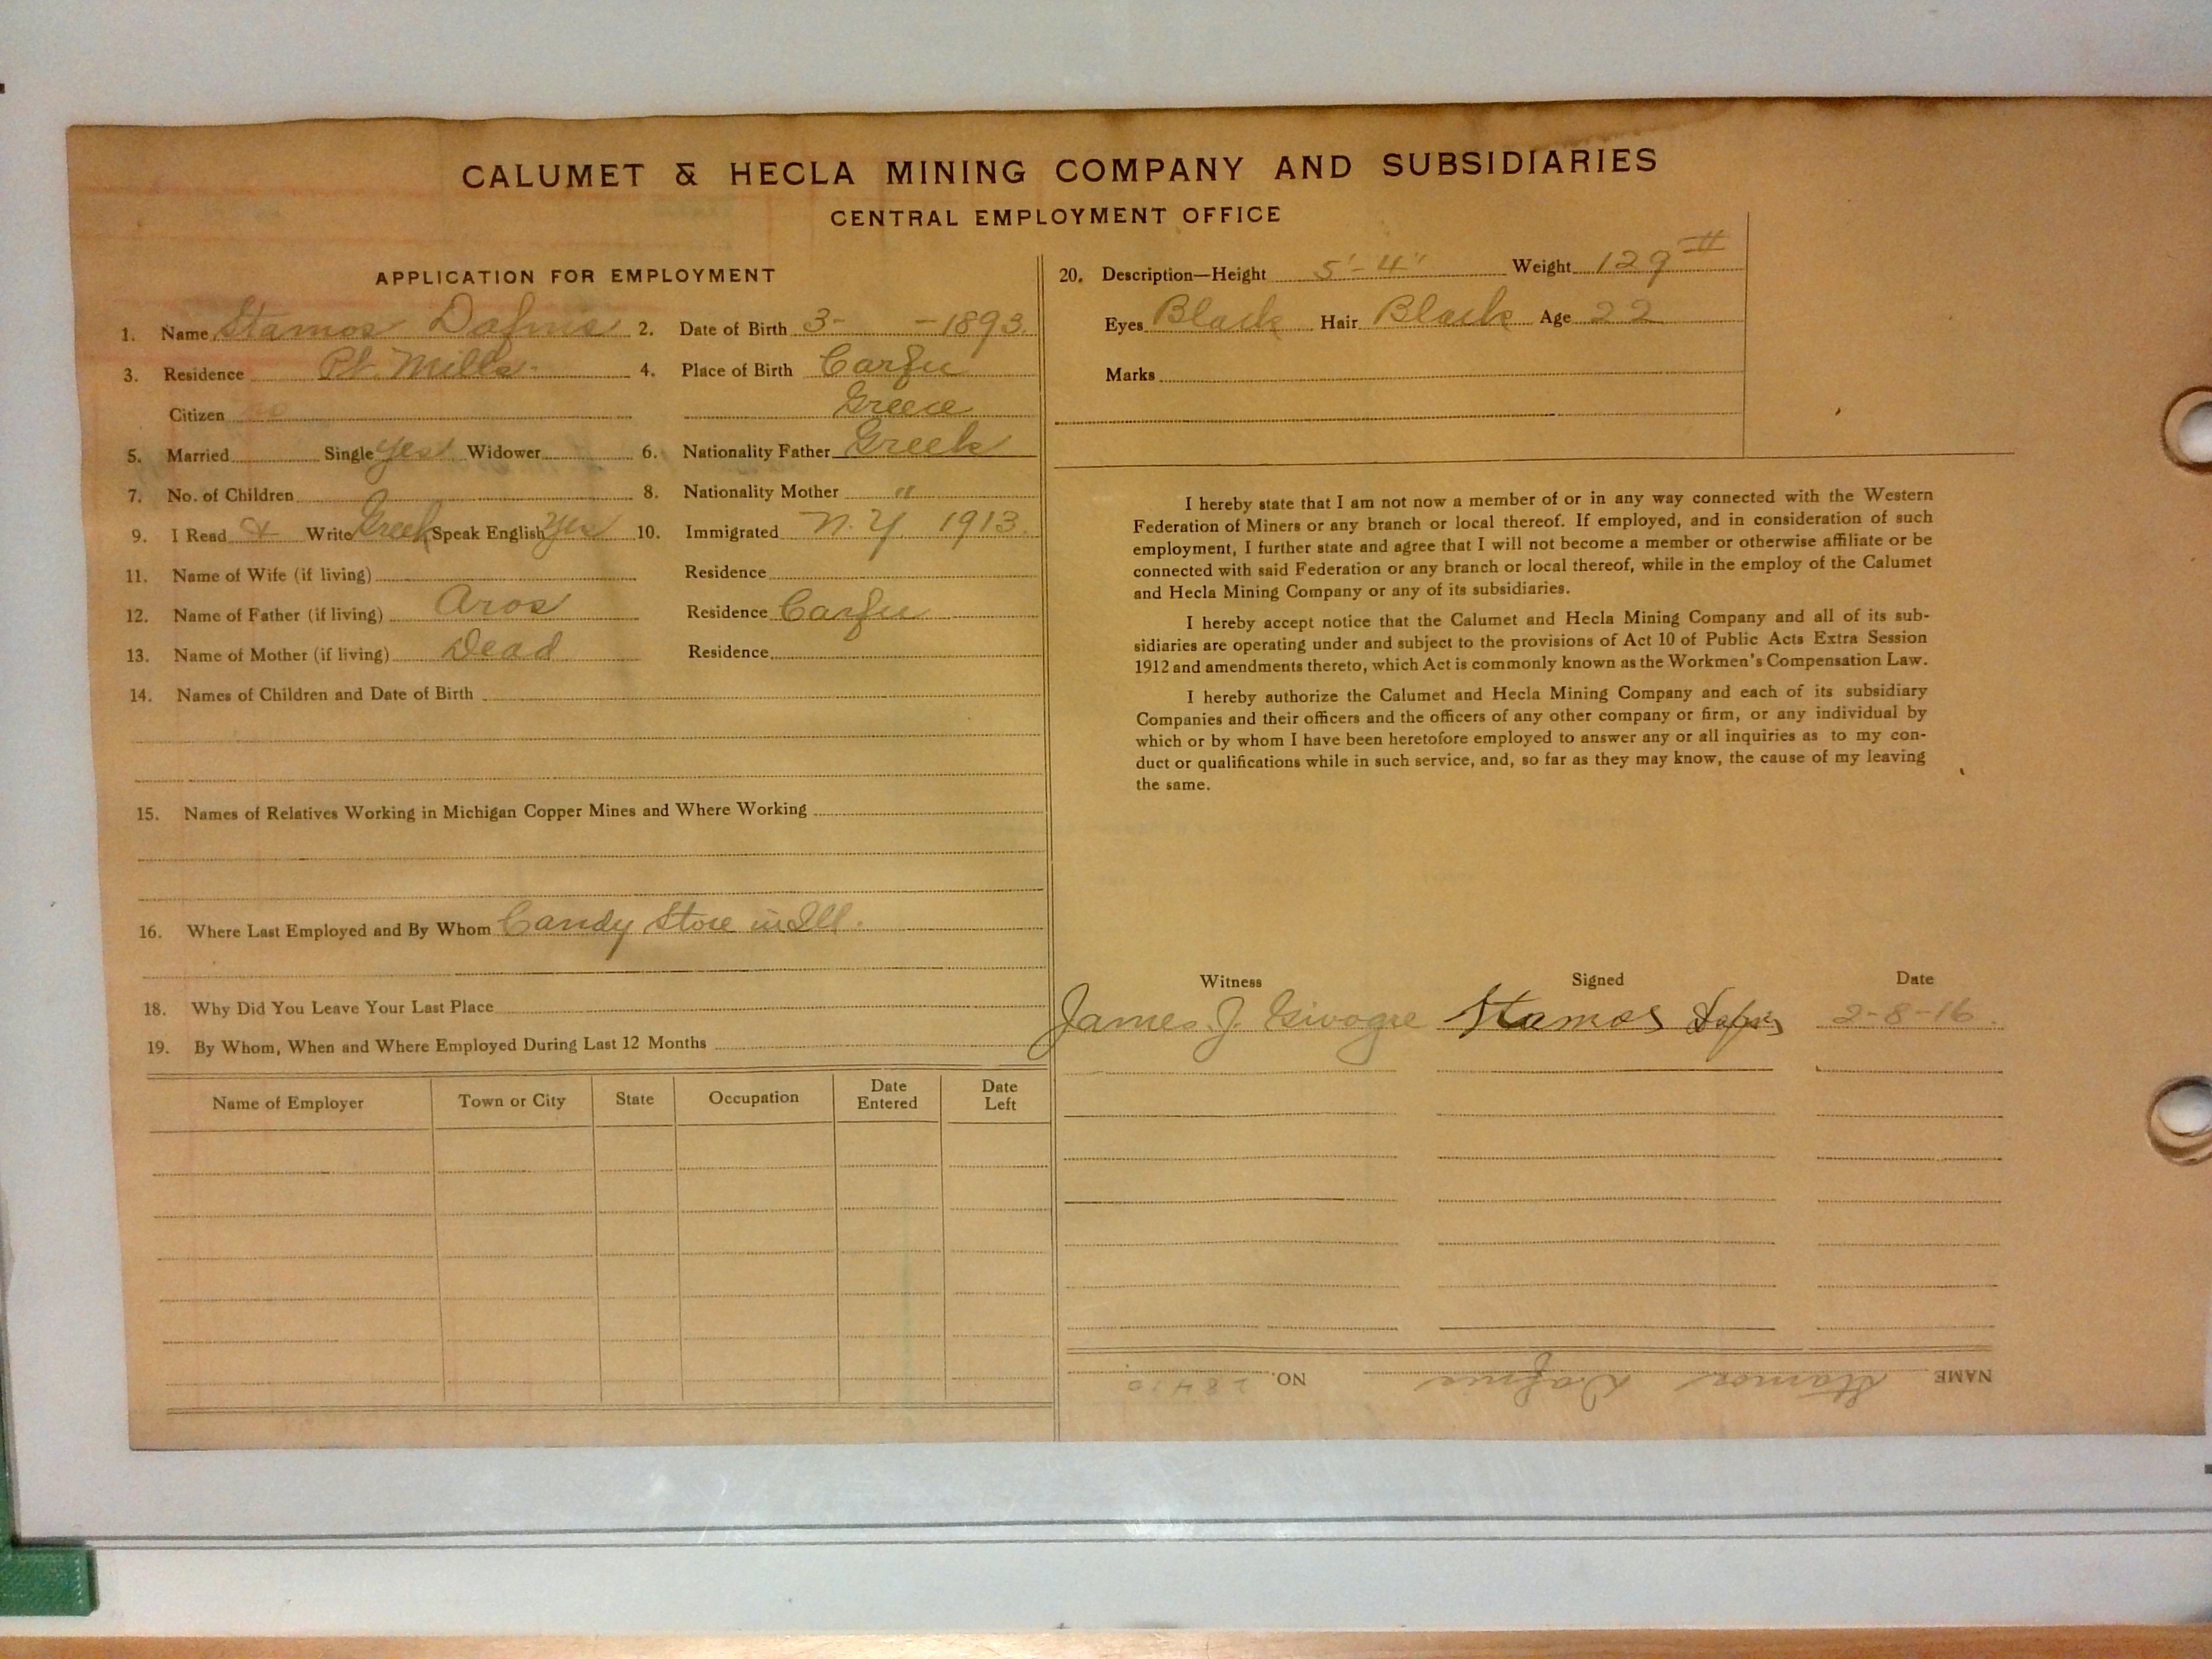 CALUMET & HECLA MINING COMPANY AND SUBSIDIARIES
CENTRAL EMPLOYMENT OFFICE
APPLICATION FOR EMPLOYMENT
1. Name Stamos Dafnis 2. Date of Birth 3- -1893.
3. Residence Pt. Mills. 4. Place of Birth Carfu
Citizen no Greece
5. Married Single yes Widower 6. Nationality Father Greek
7. No. of Children 8. Nationality Mother "
9. I Read & Write Greek Speak English Yes 10. Immigrated N.Y. 1913.
11. Name of Wife (if living) Residence
12. Name of Father (if living) Aros Residence Carfu
13. Name of Mother (if living) Dead Residence
14. Names of Children and Date of Birth
15. Names of Relatives Working in Michigan Copper Mines and Where Working
16. Where Last Employed and By Whom Candy Store in Ill.
18. Why Did You Leave Your Last Place
19. By Whom, When and Where Employed During Last 12 Months
Name of Employer Town or City State Occupation Date Entered Date Left
20. Description—Height 5'-4" Weight 129 #
Eyes Black Hair Black Age 22
Marks
I hereby state that I am not now a member of or in any way connected with the Western
Federation of Miners or any branch or local thereof. If employed, and in consideration of such
employment, I further state and agree that I will not become a member or otherwise affiliate or be
connected with said Federation or any branch or local thereof, while in the employ of the Calumet
and Hecla Mining Company or any of its subsidiaries.
I hereby accept notice that the Calumet and Hecla Mining Company and all of its sub-
sidiaries are operating under and subject to the provisions of Act 10 of Public Acts Extra Session
1912 and amendments thereto, which Act is commonly known as the Workmen's Compensation Law.
I hereby authorize the Calumet and Hecla Mining Company and each of its subsidiary
Companies and their officers and the officers of any other company or firm, or any individual by
which or by whom I have been heretofore employed to answer any or all inquiries as to my con-
duct or qualifications while in such service, and, so far as they may know, the cause of my leaving
the same.
Witness Signed Date
James J. Stamos Dafnis 2-8-16.
NAME Stamos Dafnis NO.